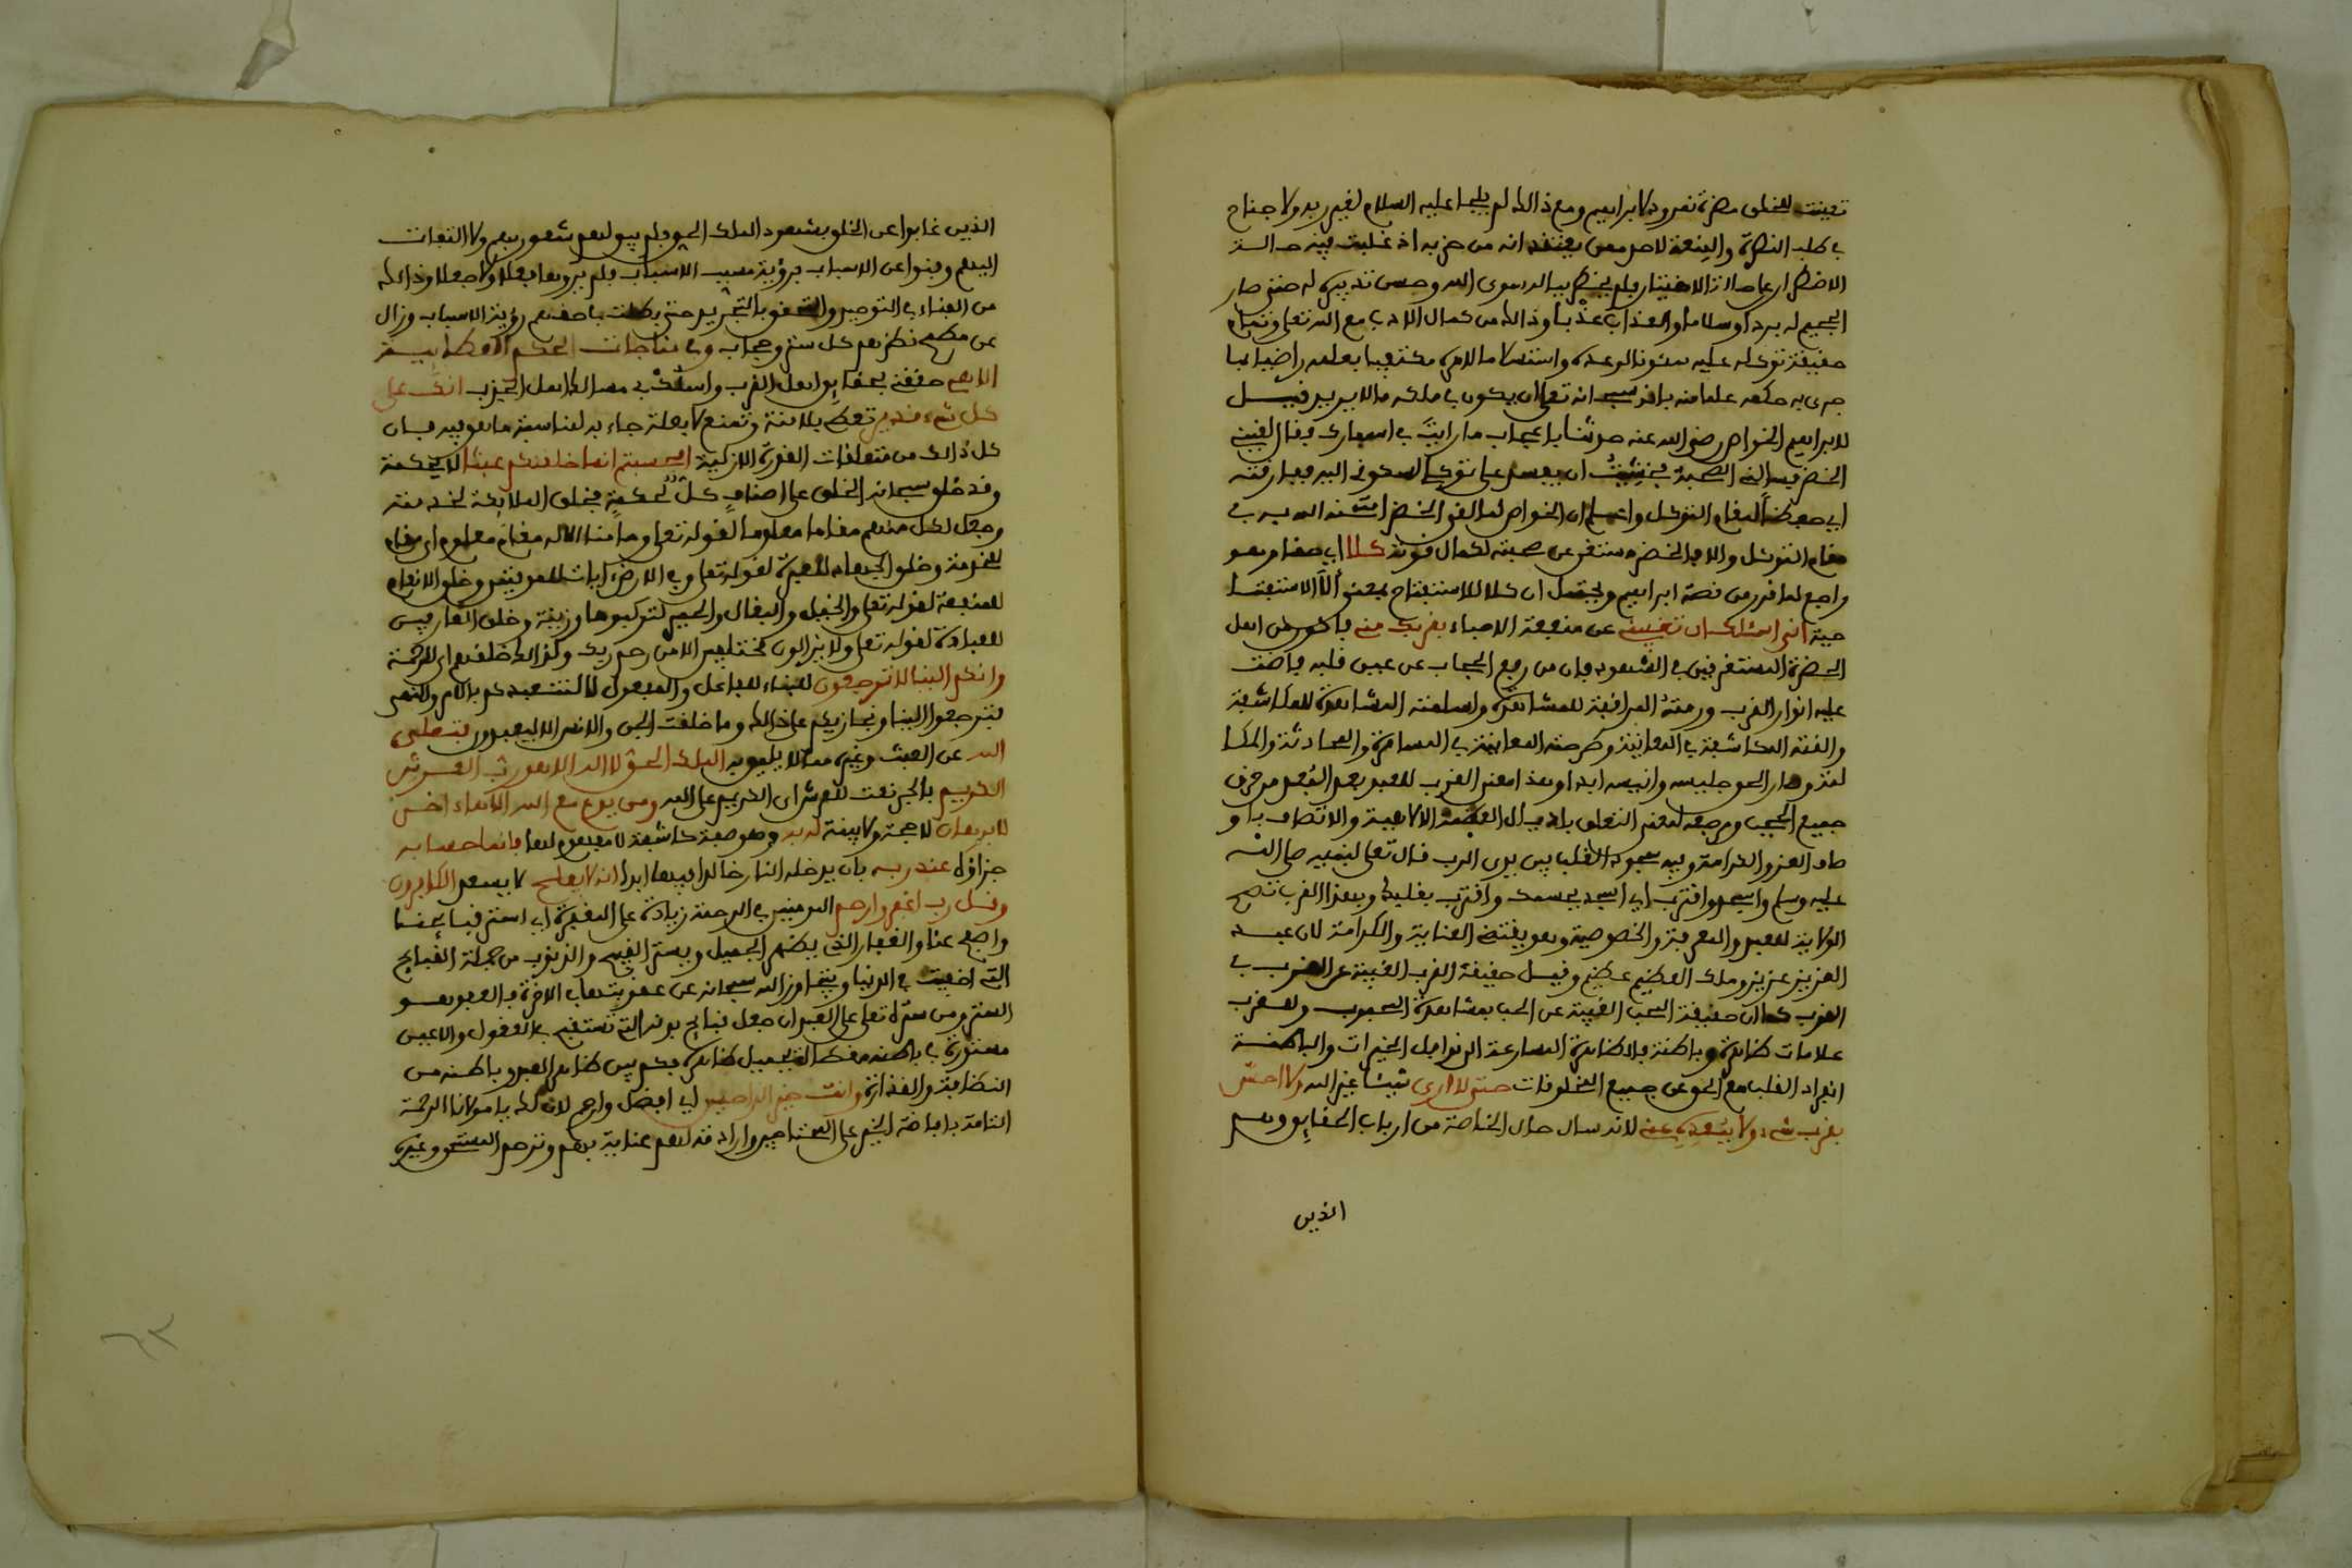 تعينت للخلق مضرة نمرود لابراهيم ومع ذالك لم يلجا عليه السلام لغير ربه ولا جناح
في طلب النصرة والمنعة لاحد ممن يعتقد انه من حزبه اذ غلبت فيه حالة
الاضطرار على حالة الاختيار فلم يخطر بباله سوى الله وحسن تدبيره له حتى صار
الجحيم له بردا وسلاما والعذاب عذبا وذالك من كمال الادب مع الله تعلى وتمام
حقيقة توكله عليه سكونا لوعده واستسلاما لامره مكتفيا بعلمه راضيا بما
جرى به حكمه علما منه بانه سبحانه تعلى ان يكون في ملكه ما لا يريد قيل
لابراهيم الخواص رضي الله عنه حدثنا باعجاب ما رايت في اسفارك فقال لقيني
الخضر فسالني الصحبة فخشيت ان يفسد على توكلي لسكوني اليه ففارقته
اي حفظا لمقام التوكل واعلم ان الخواص لما لقي الخضر امتحنه الله به في
مقام التوكل والا فالخضر مستغن عن صحبته لكمال قوته كلا اي حقا وهو
راجع لما قرر من قصة ابراهيم ويحتمل ان كلا للاستفتاح بمعنى ألا الاستفتا
حية اني اسئلك ان تغيبني عن منفعة الاحياء بقربك مني فاكون من اهل
الحضرة المستغرقين في الشهود فان من رفع الحجاب عن عين قلبه فاضت
عليه انوار القرب ورمته المراقبة للمشاهدة واسلمته المشاهدة للمكاشفة
والقته المكاشفة في المعاينة وطرحته المعاينة في المسامرة والمحادثة والمكا
لمة وصار الحق جليسه وانيسه ابدا وهذا معنى القرب للعبد بعد البعد من خرق
جميع الحجب ومرجعه لمعنى التعلق باذيال العظمة الالاهية والاتصاف باو
صاف العز والكرامة وفيه سجود القلب بين يدي الرب قال تعلى لنبيه صلى الله
عليه وسلم واسجد واقترب اي اسجد بجسمك واقترب بقلبك وبهذا القرب تصح
الولاية للعبد والمعرفة والخصوصية وهو يقتضي العناية والكرامة لان عبد
العزيز عزيز وملك العظيم عظيم وقيل حقيقة القرب الغيبة عن القرب في
القرب كما ان حقيقة الحب الغيبة عن الحب بمشاهدة المحبوب وللقرب
علامات ظاهرة وباطنة فالظاهرة المسارعة الى نوافل الخيرات والباطنة
انفراد القلب مع الحق عن جميع المخلوقات حتى لا ارى شيئا غير الله ولا احس
بقرب شيء ولا ببعده عني لانه سال حال الخاصة من ارباب الحقايق وهم
الذين
الذين غابوا عن الخلق بشهود الملك الحق فلم يبق لهم شعور بهم ولا التفات
اليهم وفنوا عن الاسباب برؤية مسبب الاسباب فلم يروها فعلا ولا جعلا وذالك
من الفناء في التوحيد والتحقق بالتجريد حتى بطلت باحقهم رؤية الاسباب وزال
عن مطمح نظرهم كل ستر وحجاب وفي مناجات الحكم العطايية
الاهي حققني بحقايق اهل القرب واسلك بي مسالك اهل الجذب انك على
كل شيء قدير تعطي بلا منة وتمنع لا بعلة جاء به لمناسبة ما هو فيه فان
كل ذالك من متعلقات القدرة الازلية افحسبتم انما خلقنكم عبثا لا لحكمة
وقد خلق سبحانه الخلق على اصناف كل لحكمة فخلق الملايكة لخدمته
وجعل لكل منهم مقاما معلوما لقوله تعلى وما منا الا له مقام معلوم اي مقام
للخدمة وخلق الجماد للعبرة لقوله تعلى وفي الارض ايات للموقنين وخلق الانعام
للمنفعة لقوله تعلى والخيل والبغال والحمير لتركبوها وزينة وخلق
للعبادة لقوله تعلى ولا يزالون مختلفين الا من رحم ربك ولذالك خلقهم اي للرحمة
وانكم الينا لا ترجعون للبناء للفاعل والمفعول لا لنتعبدكم بالامر والنهي
فترجعوا الينا ونجازيكم على ذالك وما خلقت الجن والانس الا ليعبدون فتعلى
الله عن العبث وغيره مما لا يليق به الملك الحق لا اله الا هو رب العرش
الكريم بالجر نعت للعرش اي الكريم على الله ومن يدع مع الله الاها اخر
لا برهان لا حجة ولا بينة له به وهو صفة كاشفة لا مفهوم لها فانما حسابه
جزاؤه عند ربه بان يدخله النار خالدا فيها ابدا انه لا يفلح لا يسعد الكافرون
وقل رب اغفر وارحم المومنين في الرحمة زيادة على المغفرة اي استر قبايحنا
واصفح عنا والغفار الذي يظهر الجميل ويستر القبيح والذنوب من جملة القبايح
التي اخفيت في الدنيا ويتجاوز الله سبحانه عن عقوبتها في الاخرة فالغفر هو
الستر ومن ستره تعلى على العبد ان جعل قبايح بدنه التي تستقبح في العقول والاعين
مستورة في باطنه مغطات بجميل ظاهره فكم بين ظاهر العبد وباطنه من
النظافة والقذارة وانت خير الراحمين اي افضل وارحم لان لك يا مولانا الرحمة
التامة بافاضة الخير على المحتاجين وارادته لهم عناية بهم وترحم المستحق وغيره